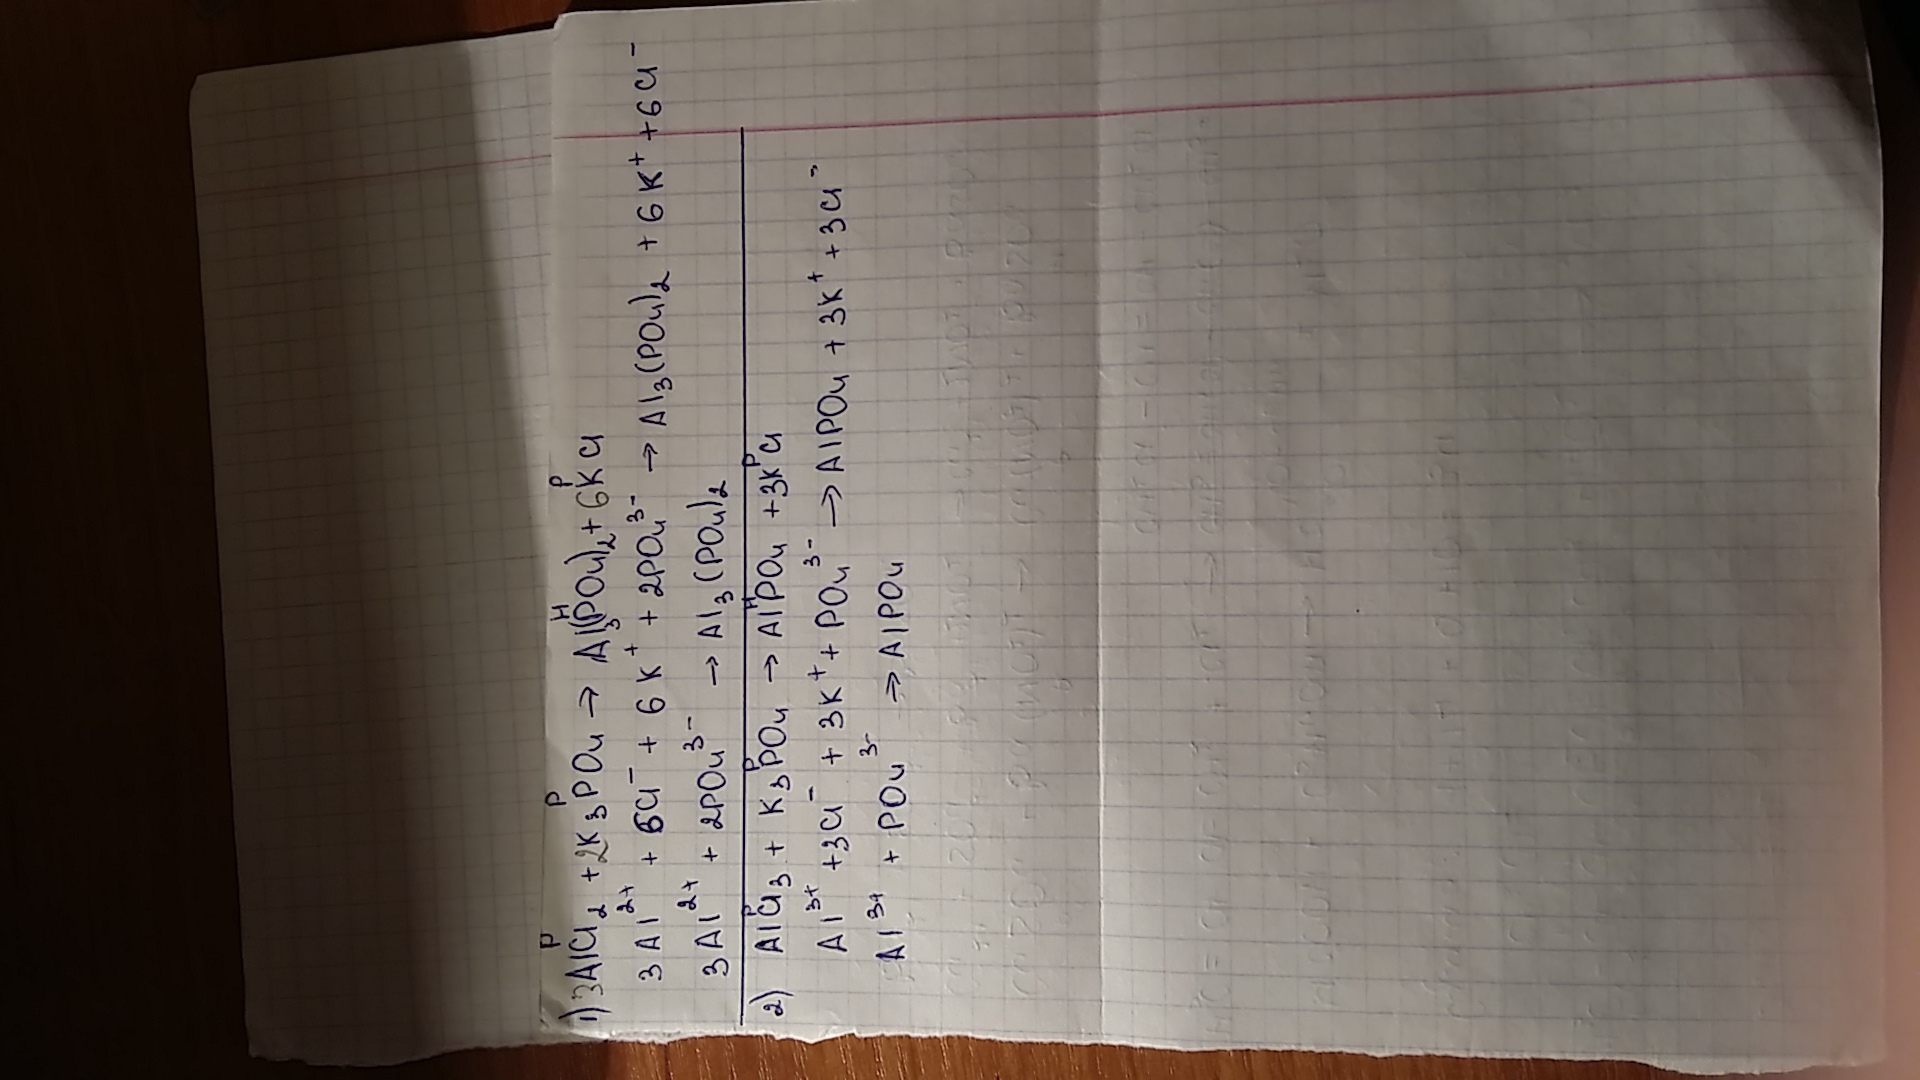 1) 3AlCl₂ᴾ + 2K₃PO₄ᴾ → Al₃(PO₄)₂ᴴ + 6KClᴾ
3Al²⁺ + 6Cl⁻ + 6K⁺ + 2PO₄³⁻ → Al₃(PO₄)₂ + 6K⁺ + 6Cl⁻
3Al²⁺ + 2PO₄³⁻ → Al₃(PO₄)₂
2) AlCl₃ᴾ + K₃PO₄ᴾ → AlPO₄ᴴ + 3KClᴾ
Al³⁺ + 3Cl⁻ + 3K⁺ + PO₄³⁻ → AlPO₄ + 3K⁺ + 3Cl⁻
Al³⁺ + PO₄³⁻ → AlPO₄